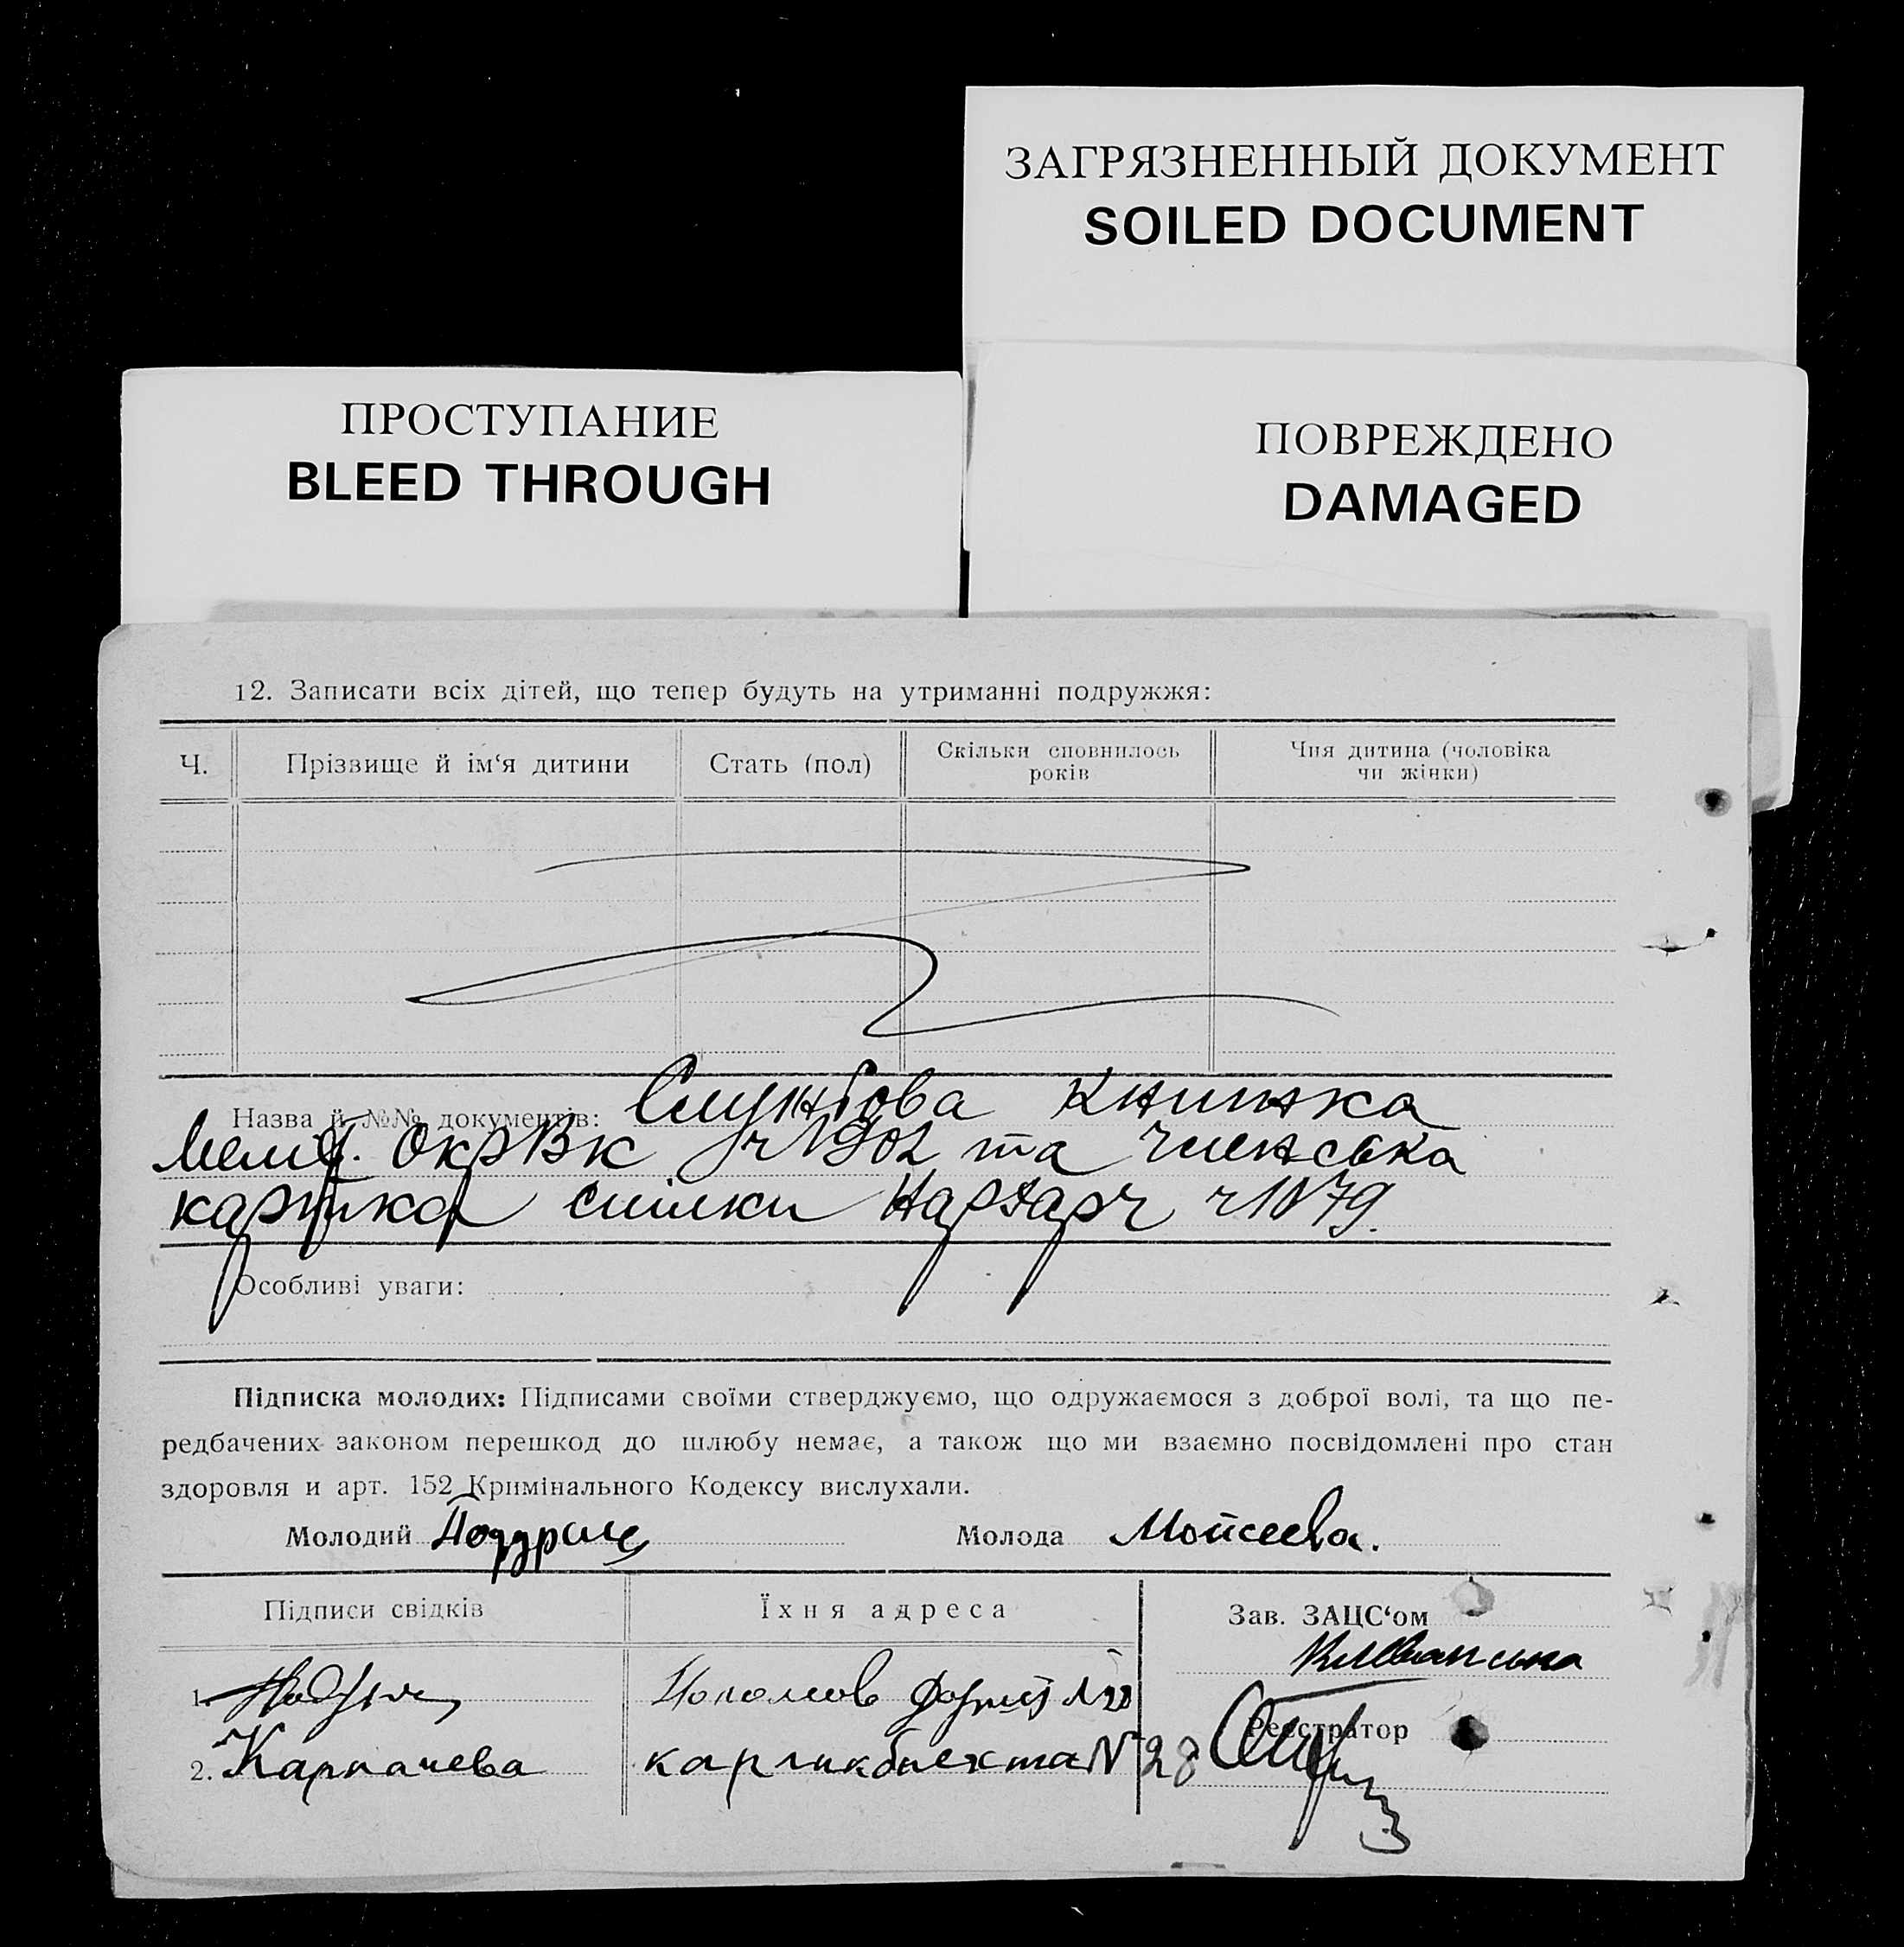 ЗАГРЯЗНЕННЫЙ ДОКУМЕНТ
SOILED DOCUMENT
ПРОСТУПАНИЕ
BLEED THROUGH
ПОВРЕЖДЕНО
DAMAGED
12. Записати всіх дітей, що тепер будуть на утриманні подружжя:
Ч.
Прізвище й ім‘я дитини
Стать (пол)
Скільки сповнилось
років
Чия дитина (чоловіка
чи жінки)
Назва й №№ документів: Службова Книжка
ОкрВк та членська
картка спілки
Особливі уваги:
Підписка молодих: Підписами своїми стверджуємо, що одружаємося з доброї волі, та що пе-
редбачених законом перешкод до шлюбу немає, а також що ми взаємно посвідомлені про стан
здоровля и арт. 152 Кримінального Кодексу вислухали.
Молодий
Молода Мойсеева.
Підписи свідків
Їхня адреса
Зав. ЗАЦС‘ом
1.
Реєстратор
2. Карпачева
№ 28